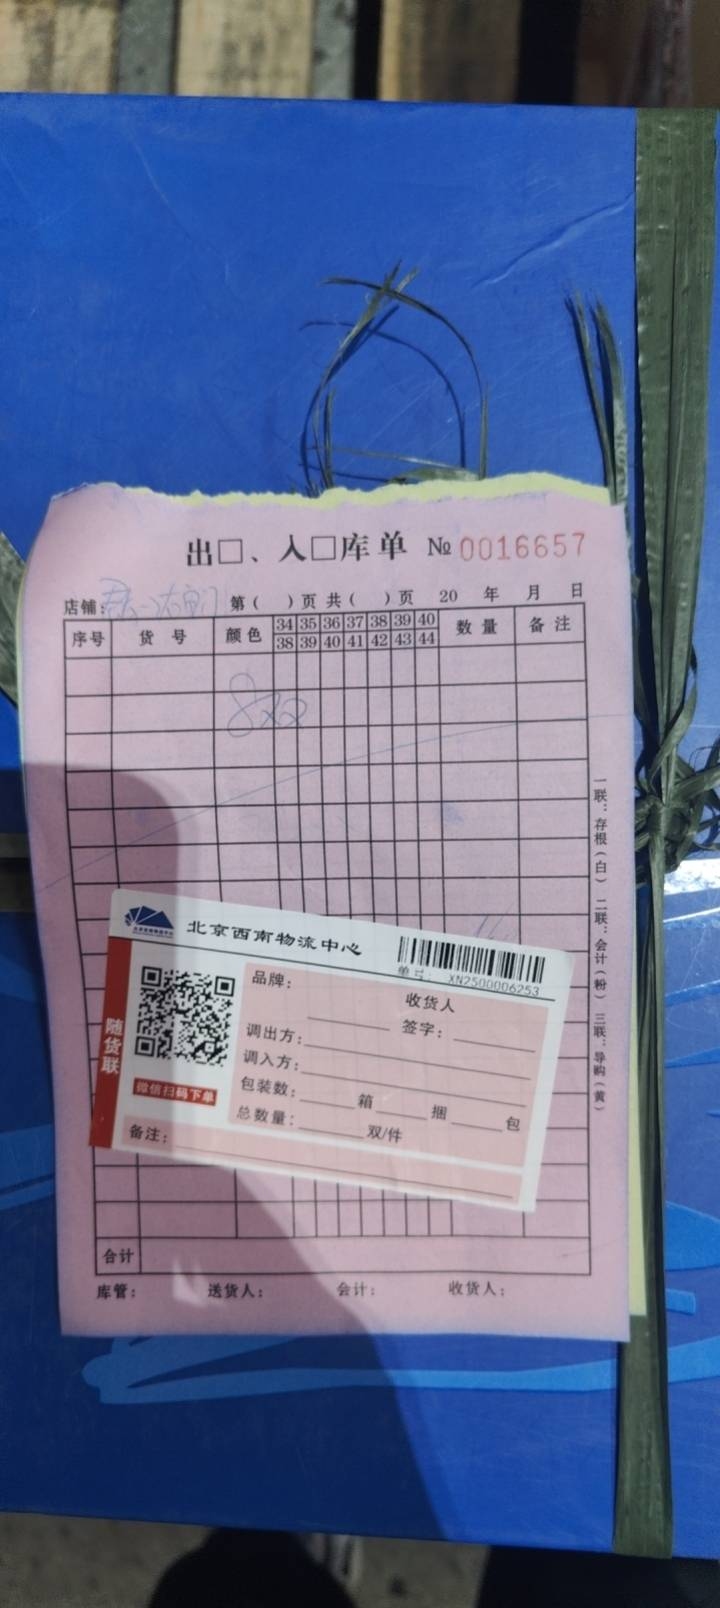 出□、入□库单 № 0016657
店铺: 第( )页 共( )页 20 年 月 日
序号 货号 颜色 34 35 36 37 38 39 40 数量 备注
38 39 40 41 42 43 44
一联:存根(白) 二联:会计(粉) 三联:导购(黄)
北京西南物流中心
XN2500006253
随货联
微信扫码下单
品牌:
收货人
签字:
调出方:
调入方:
包装数: 箱 捆 包
总数量: 双/件
备注:
合计
库管: 送货人: 会计: 收货人: